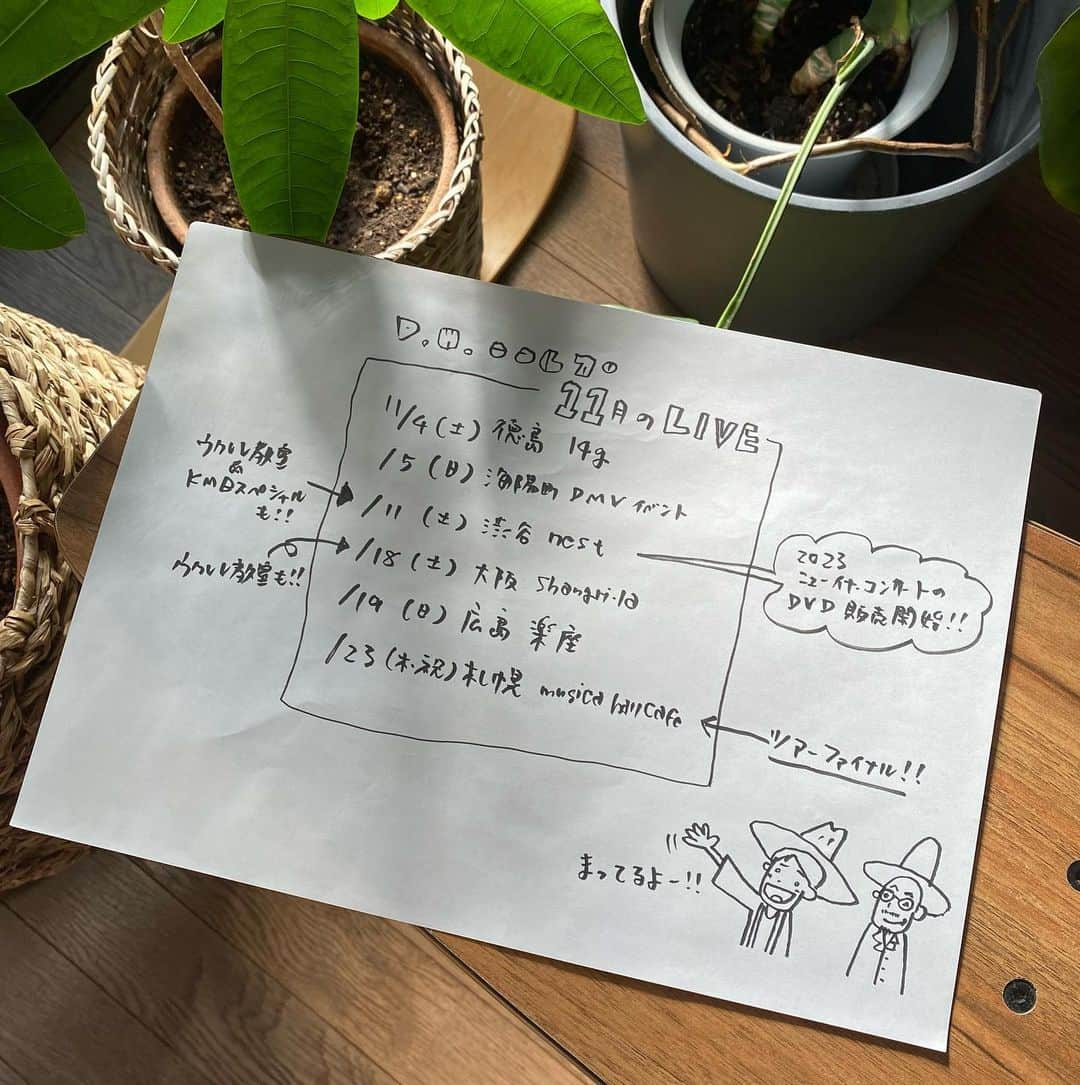 D.W.ニコルズ
11月のLIVE
11/4(土) 徳島 14g
/5(日) 海陽町 DMVイベント
/11(土) 渋谷 nest
/18(土) 大阪 Shangri-la
/19(日) 広島 楽座
/23(木・祝) 札幌 musica hall cafe
ウクレレ教室
&
KMDスペシャル
も!!
ウクレレ教室も!!
2023
ニューイヤーコンサートの
DVD 販売開始!!
ツアーファイナル!!
まってるよー!!